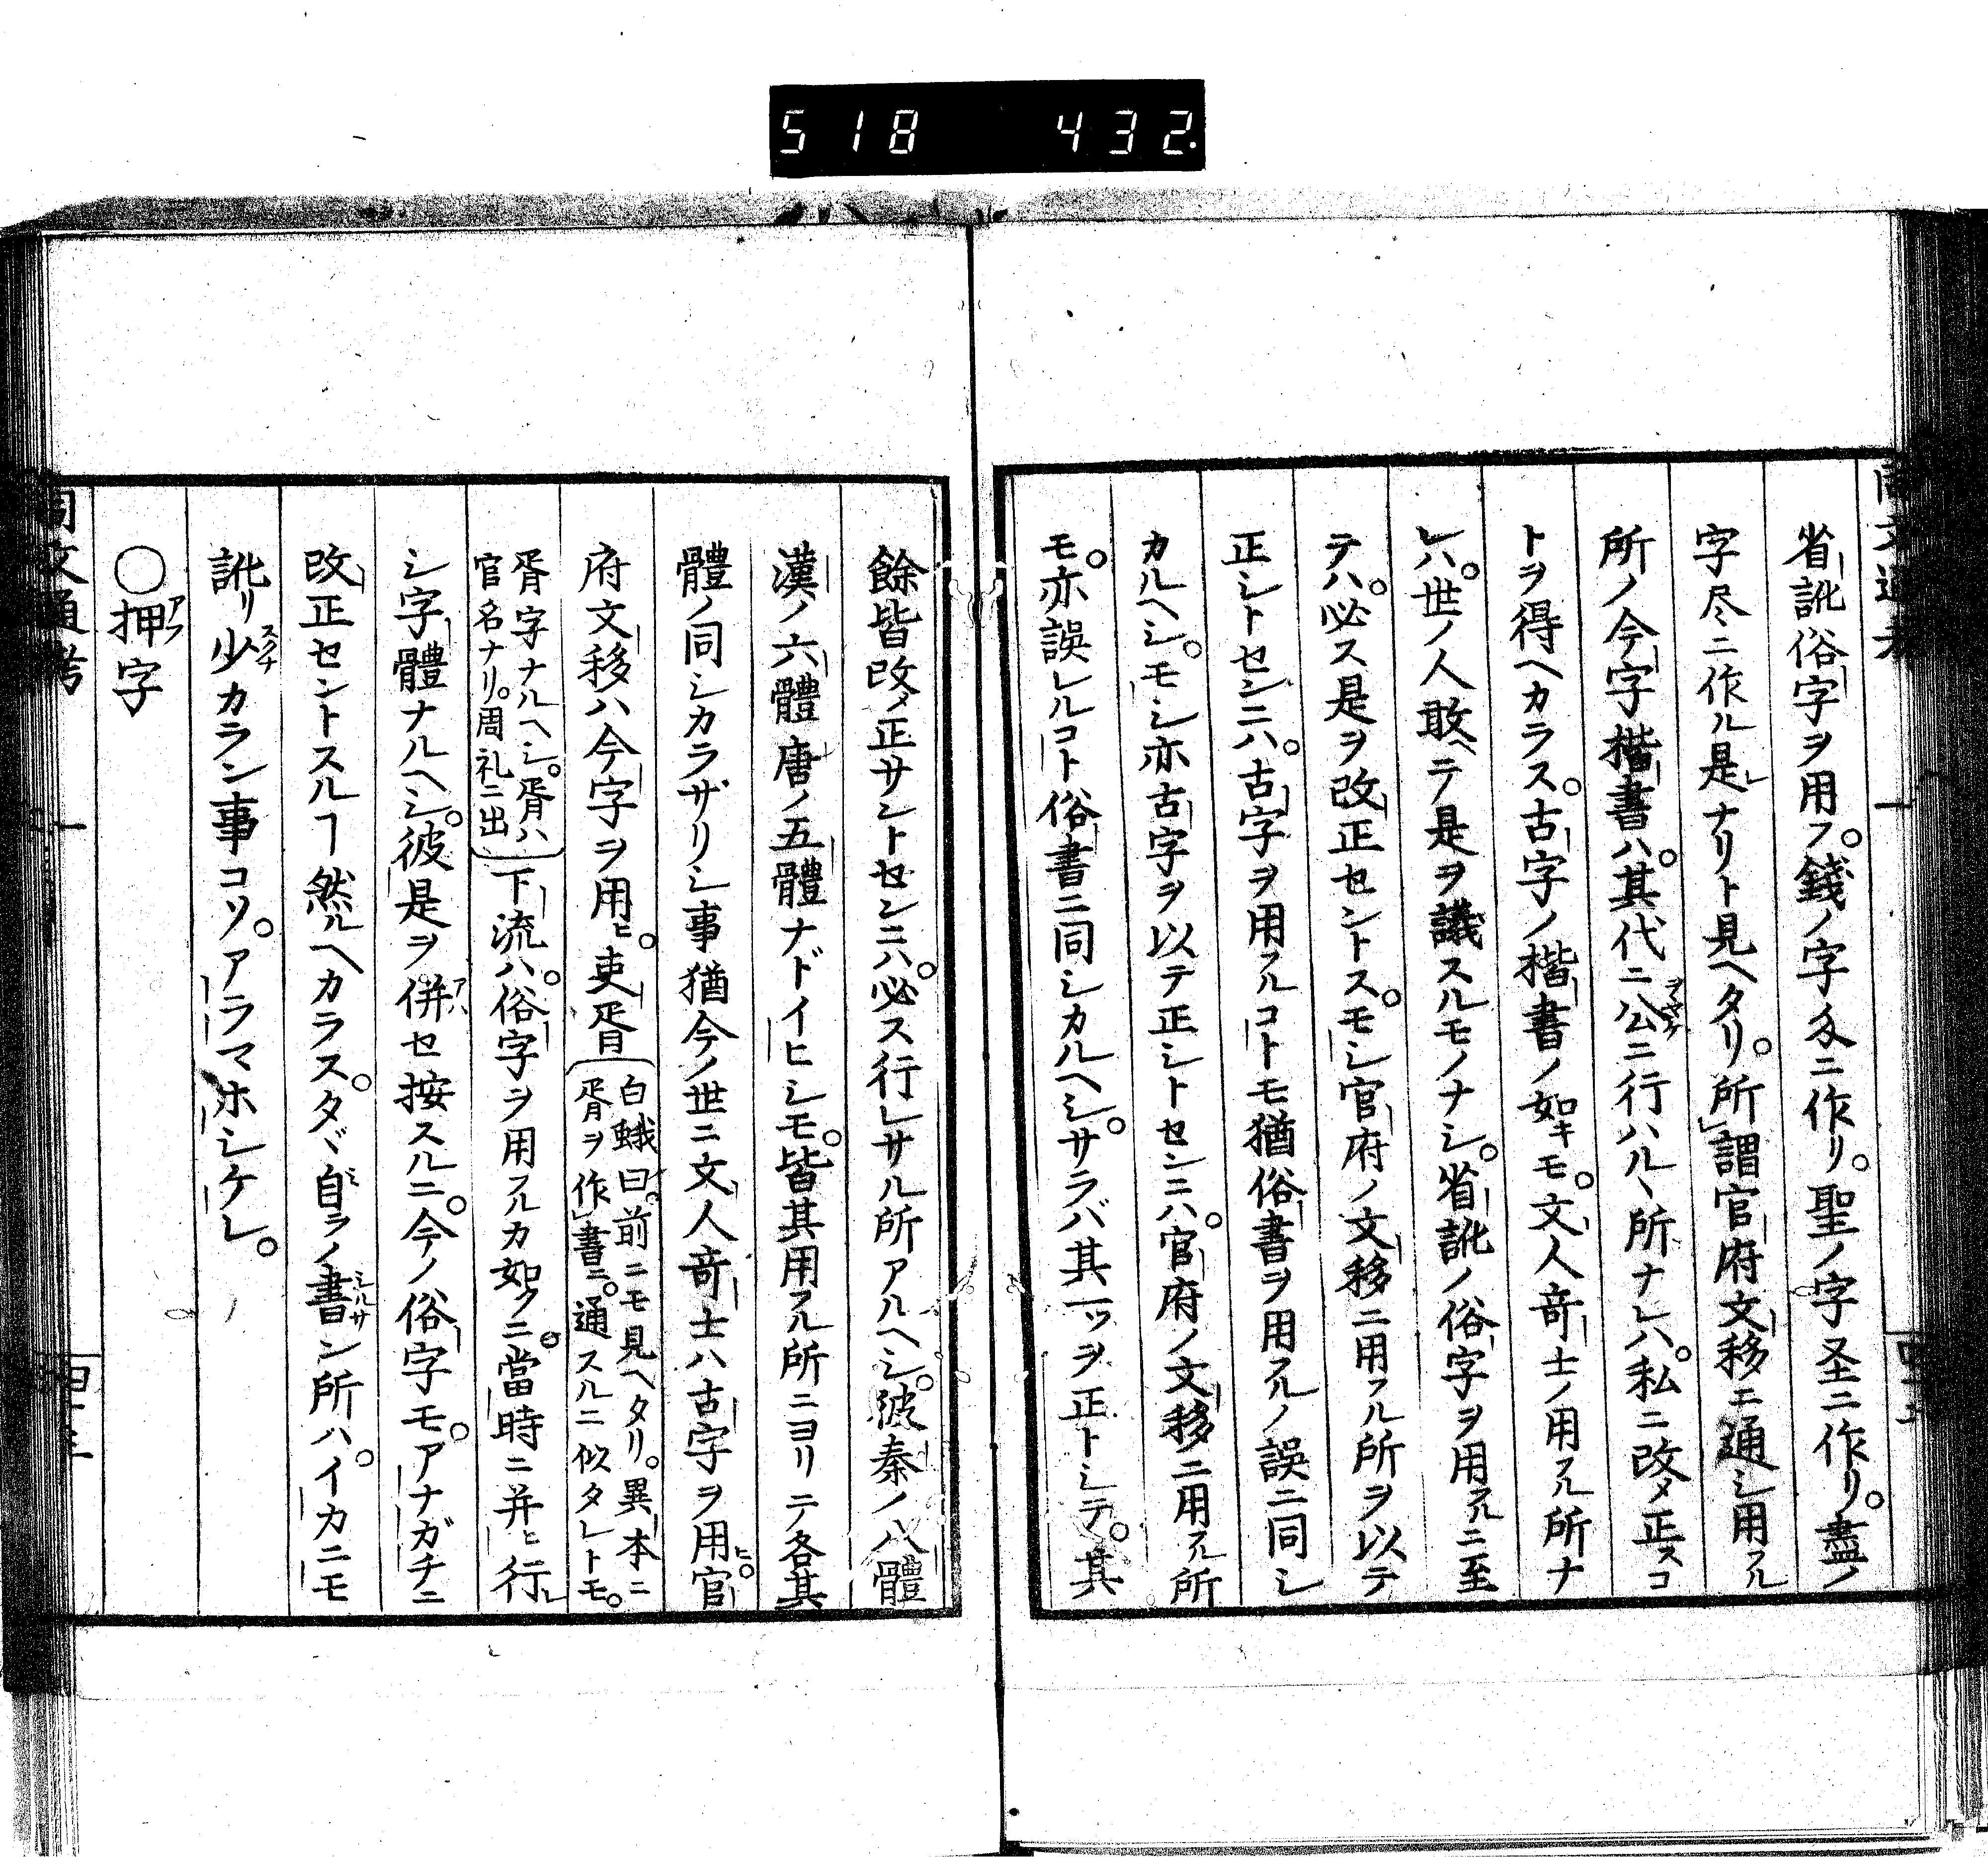 518 432.
省訛俗字ヲ用フ。錢ノ字㐱ニ作リ。聖ノ字圣ニ作リ。盡ノ
字尽ニ作ル是レナリト見ヘタリ。所謂官府文移エ通シ用フル
所ノ今字楷書ハ。其代ニ公ニ行ハルヽ所ナレハ。私ニ改メ正スコ
トヲ得ヘカラス。古字ノ楷書ノ如キモ。文人竒士ノ用フル所ナ
レハ。世ノ人敢ヘテ是ヲ議スルモノナシ。省訛ノ俗字ヲ用フルニ至
テハ。必ス是ヲ改正セントス。モシ官府ノ文移ニ用フル所ヲ以テ
正シトセンニハ。古字ヲ用フルコトモ猶俗書ヲ用フルノ誤ニ同シ
カルヘシ。モシ亦古字ヲ以テ正シトセンニハ。官府ノ文移ニ用フル所
モ。亦誤レルコト俗書ニ同シカルヘシ。サラバ其一ッヲ正トシテ。其
餘皆改メ正サントセンニハ。必ス行レサル所アルヘシ。彼秦ノ八體
漢ノ六體唐ノ五體ナドイヒシモ。皆其用フル所ニヨリテ各其
體ノ同シカラザリシ事猶今ノ世ニ文人竒士ハ古字ヲ用ヒ。官
府文移ハ今字ヲ用ヒ。吏胥(白蛾曰。前ニモ見ヘタリ。異本ニ
胥ヲ作書ニ。通スルニ似タレトモ。
胥字ナルヘシ。胥ハ
官名ナリ。周礼ニ出)下流ハ。俗字ヲ用フルカ如クニ。當時ニ并ヒ行レ
シ字體ナルヘシ。彼是ヲ併セ按スルニ。今ノ俗字モ。アナガチニ
改正セントスルヿ然ルヘカラス。タヾ自ラノ書サン所ハ。イカニモ
訛リ少カラン事コソ。アラマホシケレ。
〇押字
同文通考 一